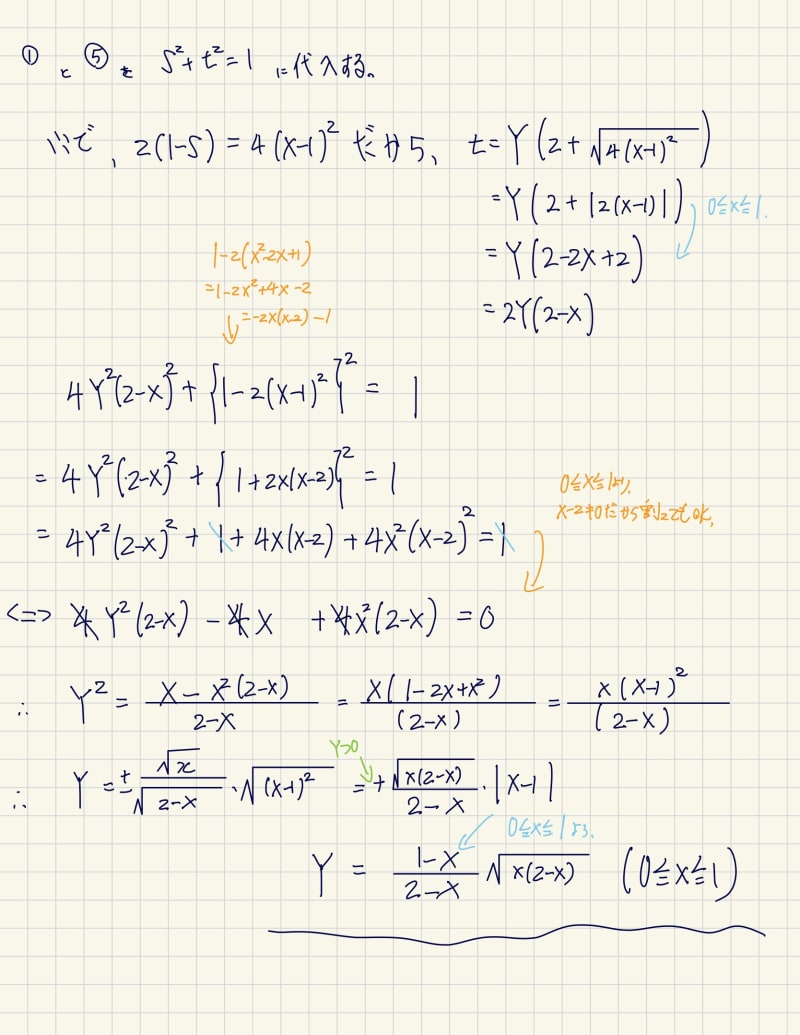 ① と ⑤ を s²+t²=1 に代入する。
ここで, 2(1-s) = 4(x-1)² だから、 t = Y(2+√(4(x-1)²))
= Y(2+|2(x-1)|) 0≦x≦1.
= Y(2-2x+2)
= 2Y(2-x)
1-2(x²-2x+1)
=1-2x²+4x-2
=-2x(x-2)-1
4Y²(2-x)² + {1-2(x-1)²}² = 1
= 4Y²(2-x)² + {1+2x(x-2)}² = 1
0≦x≦1より,
x-2≠0だから割ってもOK,
= 4Y²(2-x)² + 1 + 4x(x-2) + 4x²(x-2)² = 1
<=> 4Y²(2-x) - 4x + 4x²(2-x) = 0
∴ Y² = (x-x²(2-x))/(2-x) = x(1-2x+x²)/(2-x) = x(x-1)²/(2-x)
Y>0
∴ Y = ±√x/√(2-x)・√((x-1)²) = +√(x(2-x))/(2-x)・|x-1|
0≦x≦1より.
Y = (1-x)/(2-x) √(x(2-x)) (0≦x≦1)